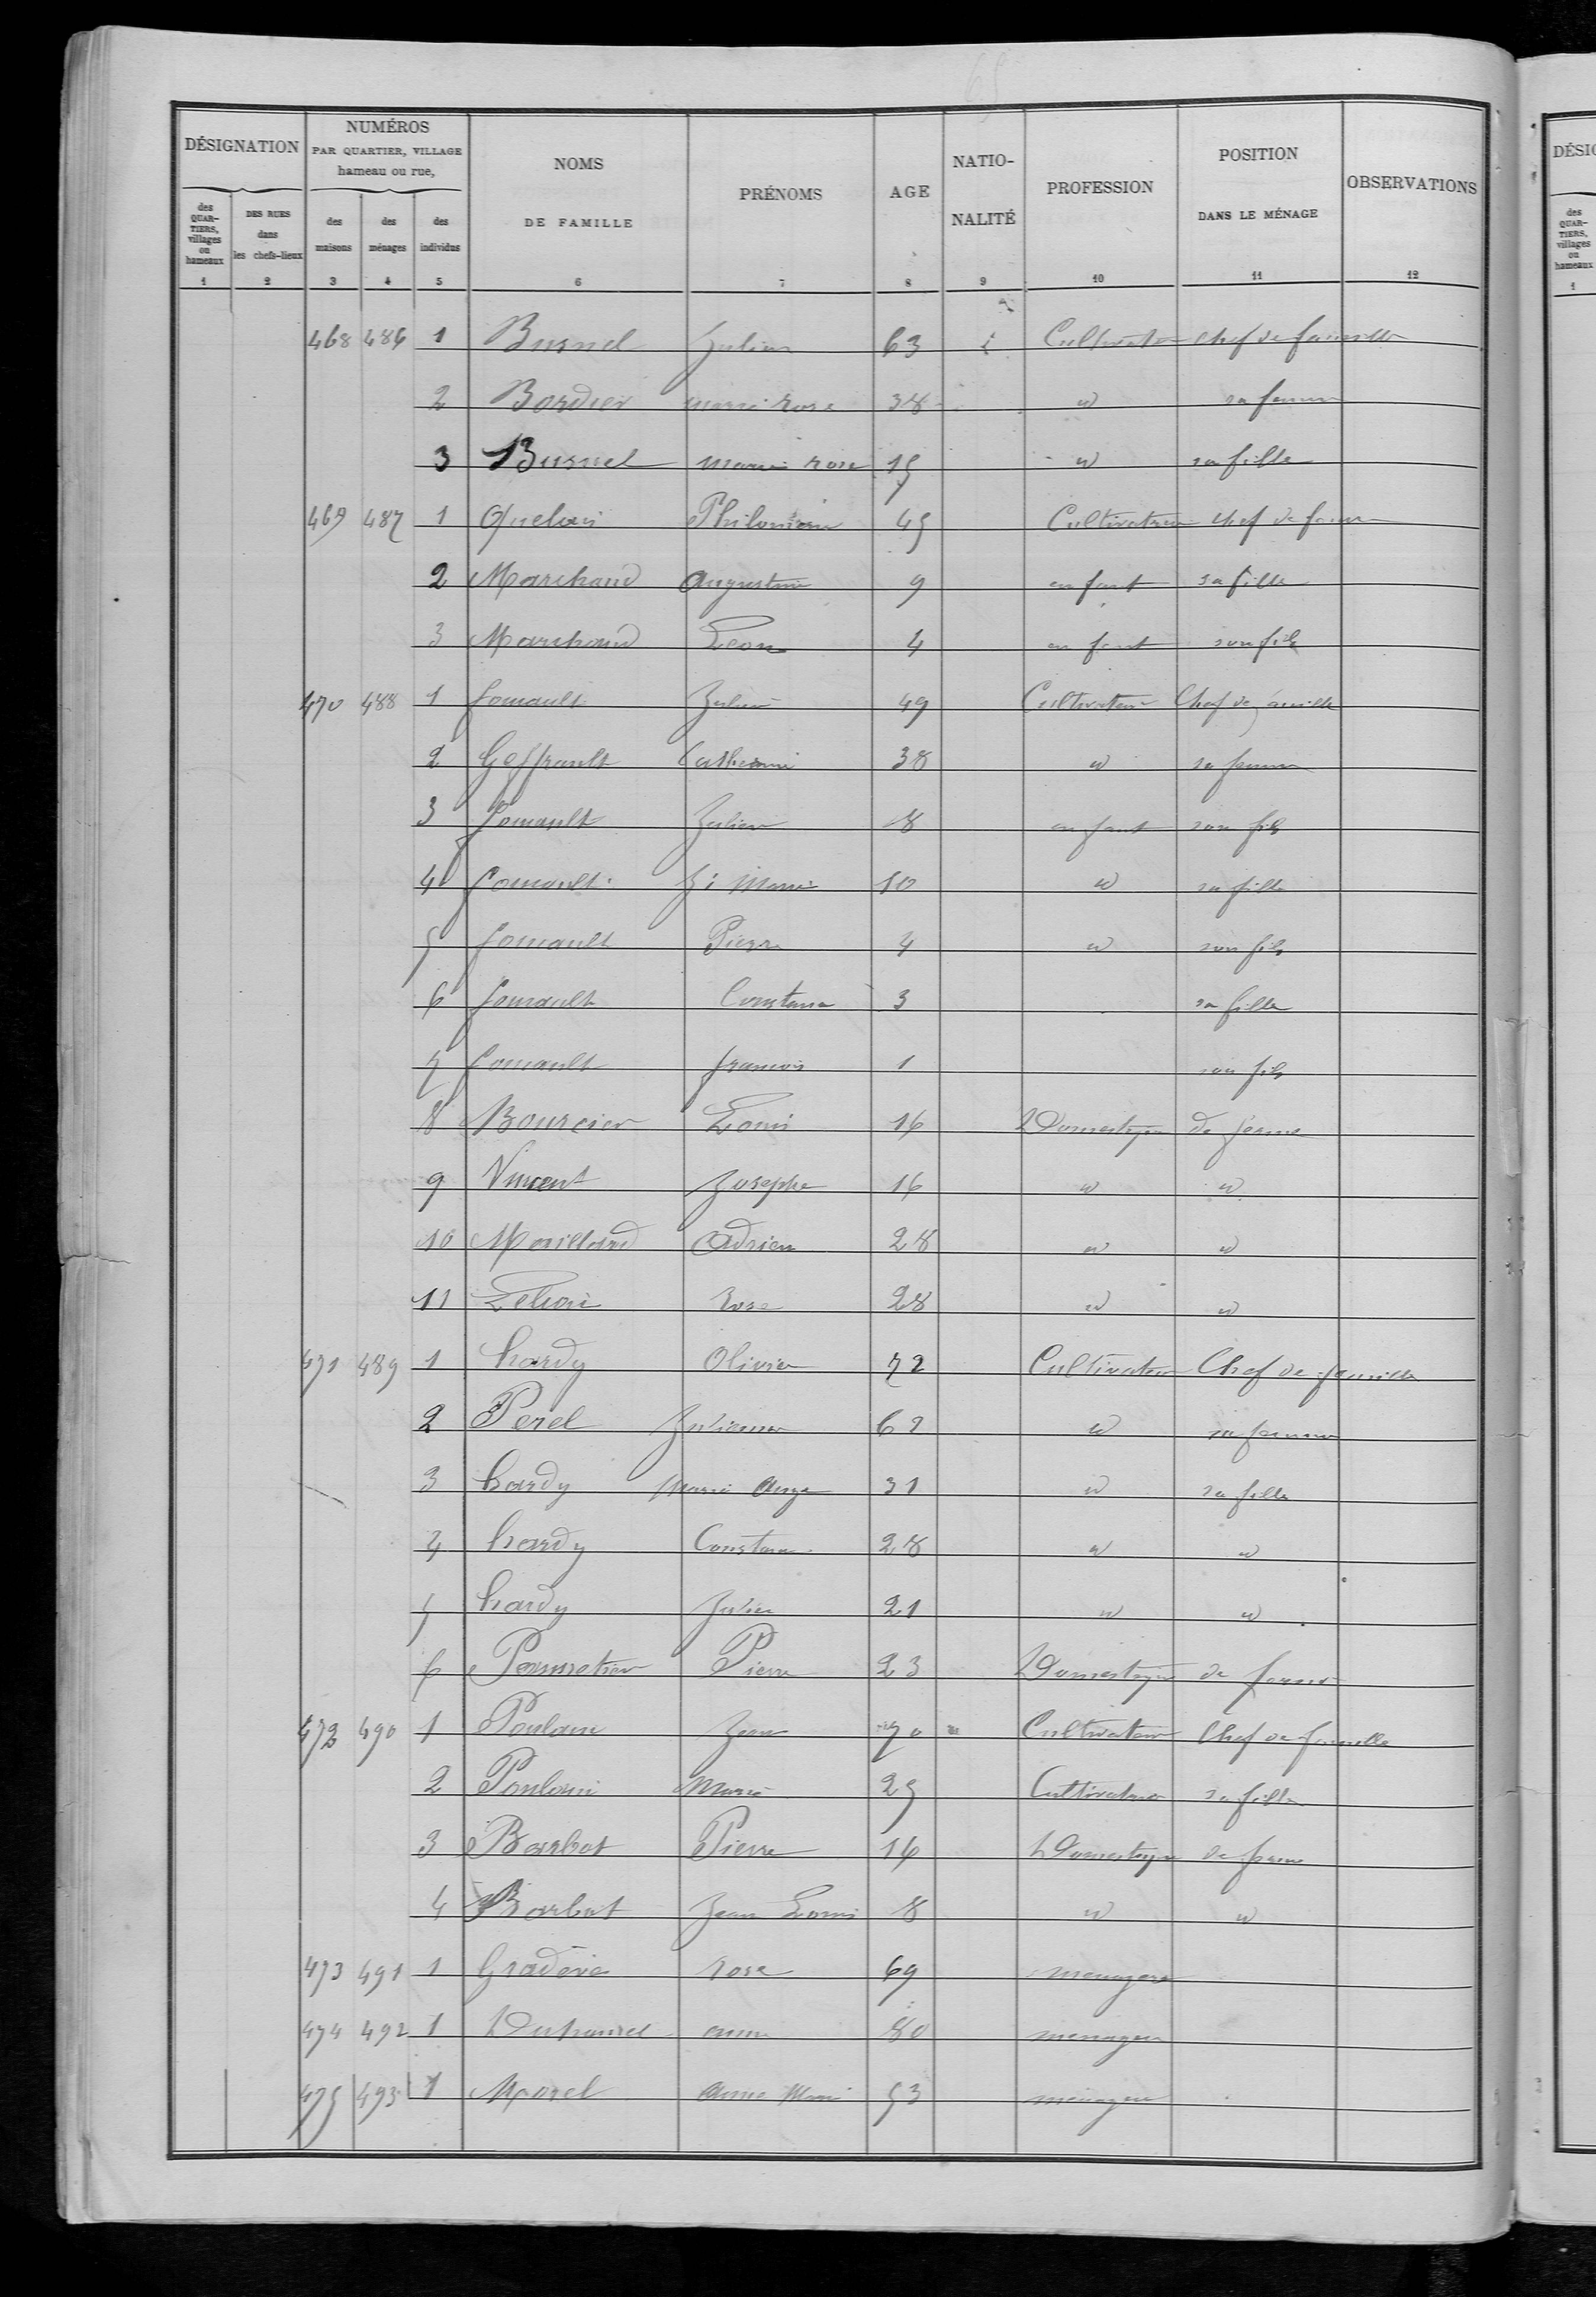 65
DÉSIGNATION
NUMÉROS
PAR QUARTIER, VILLAGE
hameau ou rue,
NOMS
DE FAMILLE
PRÉNOMS
AGE
NATIO-
NALITÉ
PROFESSION
POSITION
DANS LE MÉNAGE
OBSERVATIONS
des QUAR-TIERS, villages ou hameaux
DES RUES dans les chefs-lieux
des maisons
des ménages
des individus
1 2 3 4 5 6 7 8 9 10 11 12
468 486 1 Busnel Julien 63 Cultivateur chef de famille
2 Bordier marie rose 38 id sa femme
3 Busnel marie rose 15 id sa fille
469 487 1 Philomène 45 Cultivatrice chef de
2 Marchand Augustine 9 enfant sa fille
3 Marchand Leon 4 enfant son fils
470 488 1 Jouault Julien 49 Cultivateur Chef de famille
2 Geffrault Catherine 38 id sa femme
3 Jouault Julien 8 enfant son fils
4 Jouault Marie 10 id sa fille
5 Jouault Pierre 4 id son fils
6 Jouault Constance 3 sa fille
7 Jouault francois 1 son fils
8 Bourcier Louis 16 Domestique de ferme
9 Vincent Josephe 16 id id
10 Maillard Adrien 28 id id
11 rose 28 id id
471 489 1 hardy Olivier 72 Cultivateur Chef de famille
2 Perel Julienne 62 id sa femme
3 hardy Marie Ange 31 id sa fille
4 hardy Constance 28 id id
5 hardy Julie 21 id id
6 Pierre 23 Domestique de ferme
472 490 1 Poulain Jean 70 Cultivateur Chef de famille
2 Poulain Marie 25 Cultivateur sa fille
3 Barbot Pierre 16 Domestique de ferme
4 Barbot Jean Louis 8 id id
473 491 1 rose 69 menagere
474 492 1 anne 80 menagere
475 493 1 Morel Anne Marie 53 menagere
DÉSIG
des QUAR-TIERS, villages ou hameaux
1